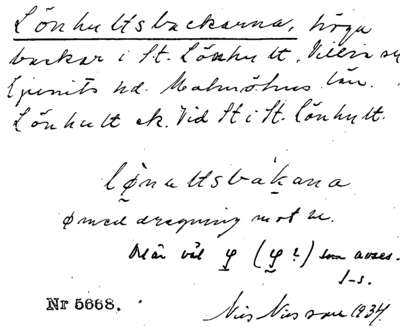 Lönhultsbackarna, höga
backar i St. Lönhult, Villie sn
Ljunits hd. Malmöhus län.
Lönhult ek. Vid St i St. Lönhult.
lø̰nultsbák̬ana
ø med dragning mot u.
Det är väl φ̰ (φ̰?) som avses.
I-s.
Nr 5668.
Nils Nilsson 1934